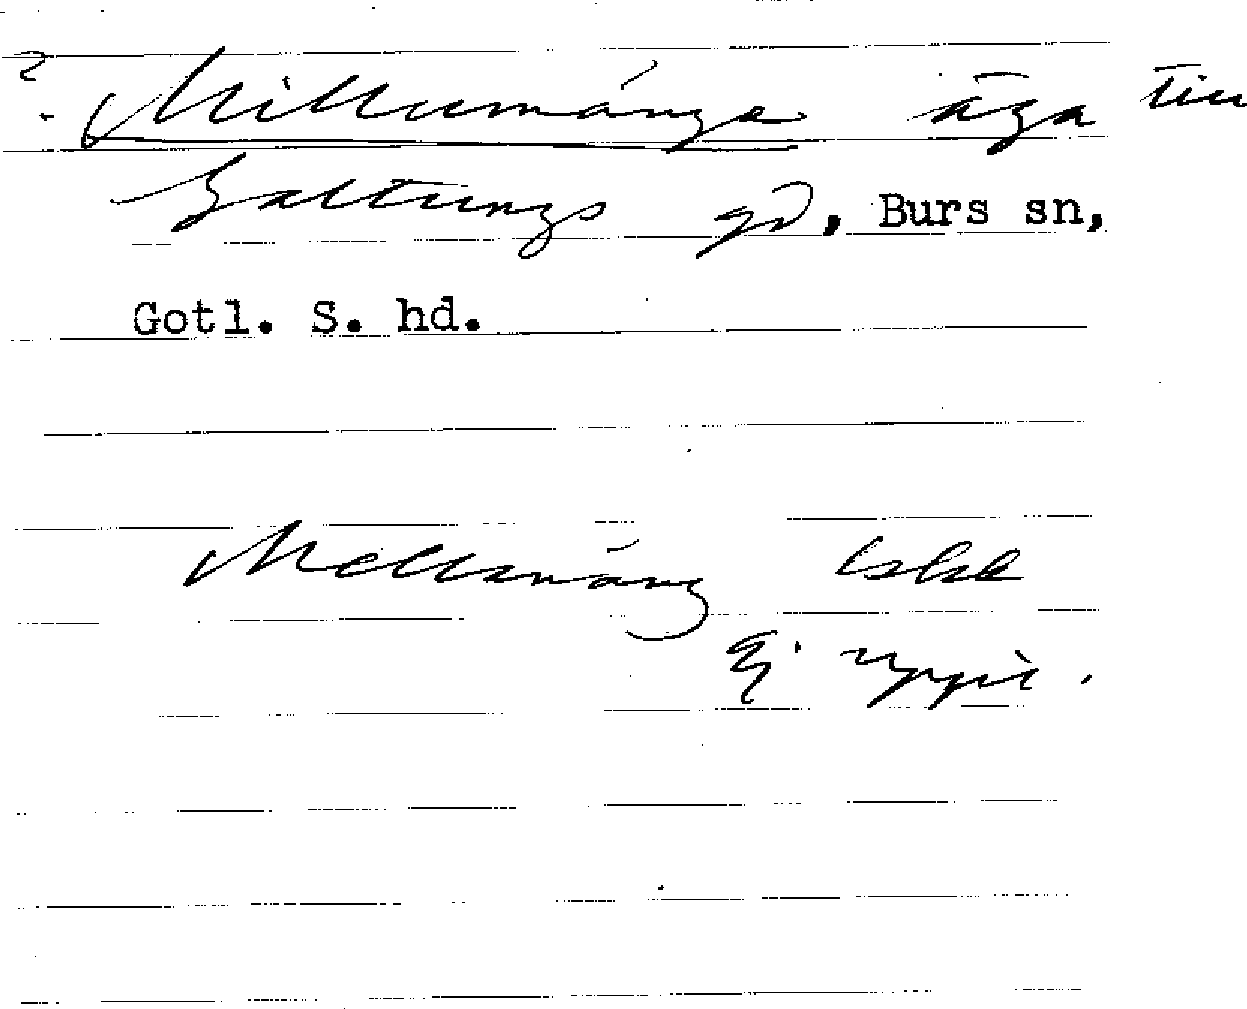 ? Millumånge äga till
Galtungs gd, Burs sn,
Gotl. S. hd.
Mellmång
Ej uppt.